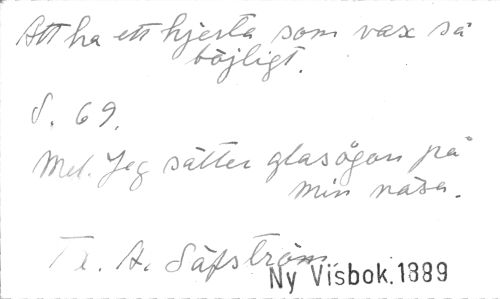 Att ha ett hjerta som vax så
böjligt.
S. 69.
Mel. Jeg sätter glasögon på
min näsa.
Tx. A. Säfström.
Ny Visbok.1889